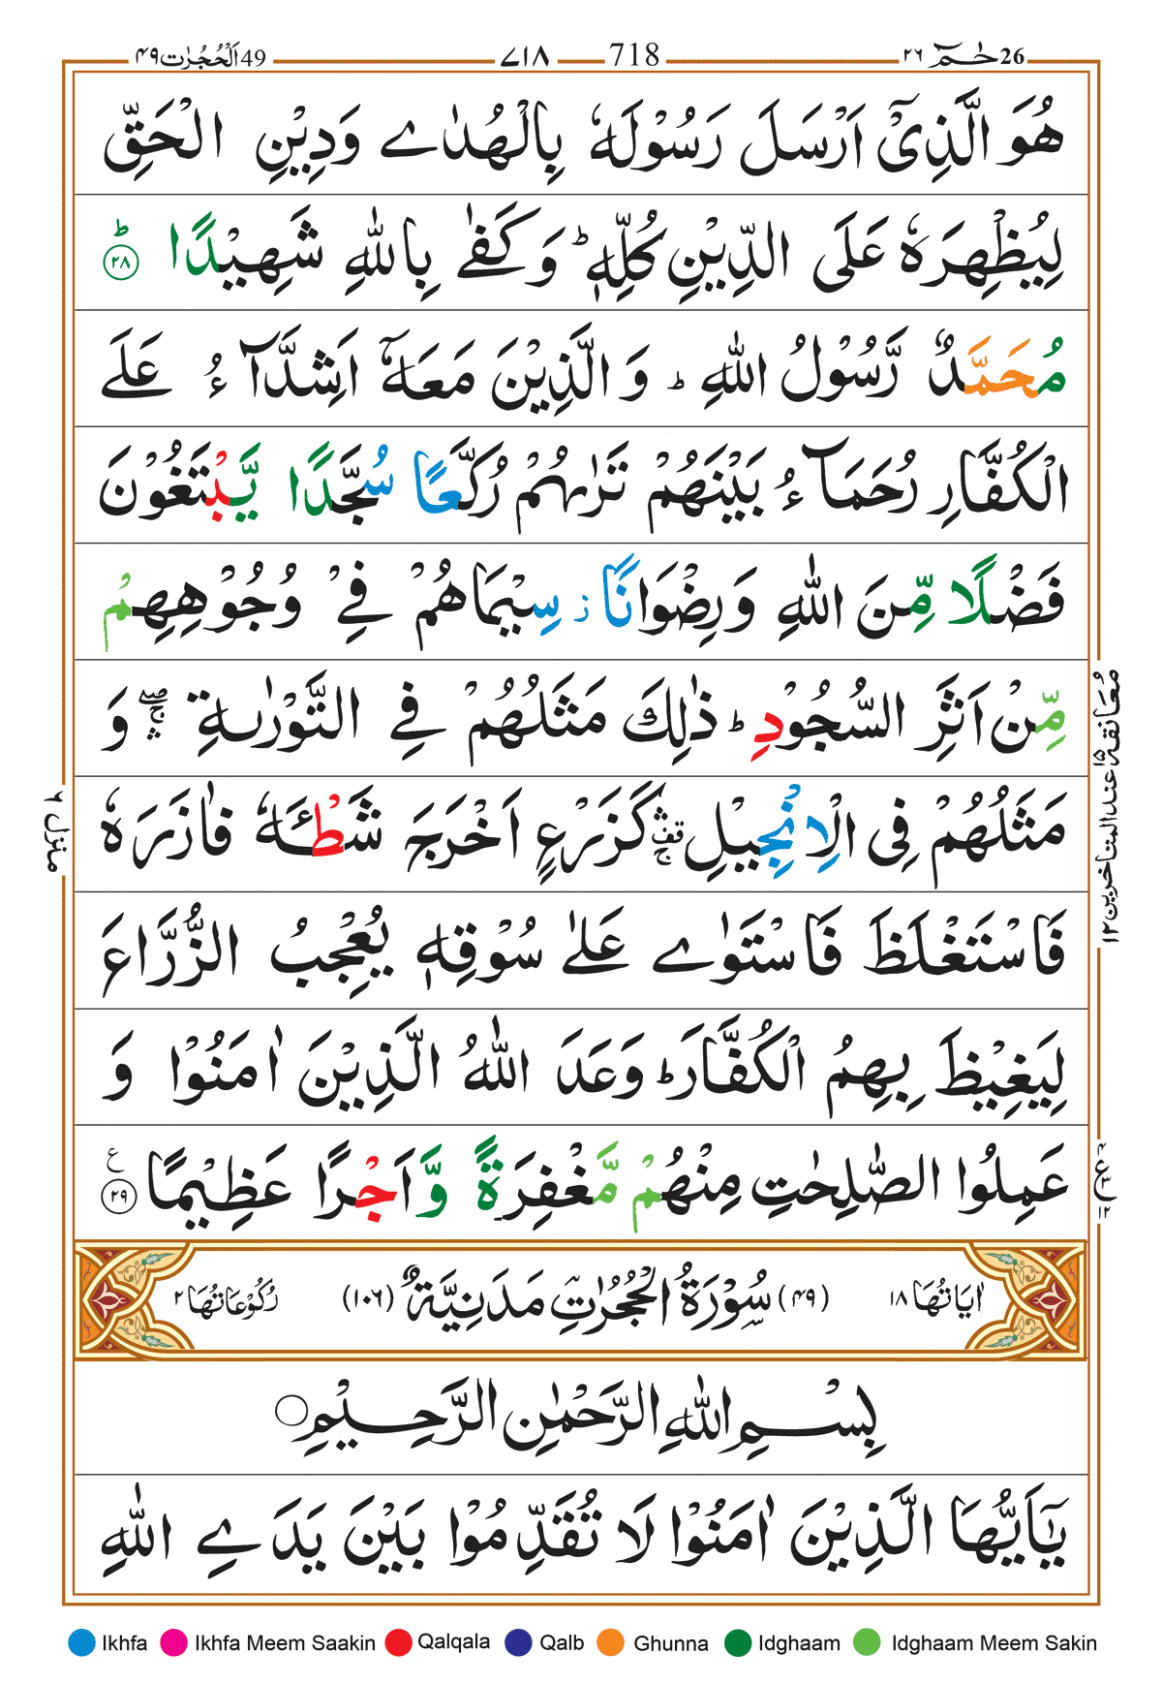 26 حٰـمٓ ٢٦ 718 ٧١٨ 49 اَلْحُجُرٰت ٤٩
هُوَ الَّذِیْۤ اَرْسَلَ رَسُوْلَهٗ بِالْهُدٰے وَدِیْنِ الْحَقِّ
لِیُظْهِرَهٗ عَلَی الدِّیْنِ كُلِّهٖ ؕ وَكَفٰے بِاللّٰهِ شَهِیْدًا ؕ ۲۸
مُحَمَّدٌ رَّسُوْلُ اللّٰهِ ؕ وَالَّذِیْنَ مَعَهٗۤ اَشِدَّآءُ عَلَے
الْكُفَّارِ رُحَمَآءُ بَیْنَهُمْ تَرٰىهُمْ رُكَّعًا سُجَّدًا یَّبْتَغُوْنَ
فَضْلًا مِّنَ اللّٰهِ وَرِضْوَانًا ز سِیْمَاهُمْ فِیْ وُجُوْهِهِمْ
مِّنْ اَثَرِ السُّجُوْدِ ؕ ذٰلِكَ مَثَلُهُمْ فِے التَّوْرٰىةِ ۛۖۚ وَ
مَثَلُهُمْ فِی الْاِنْجِیْلِ ۛۚ قف كَزَرْعٍ اَخْرَجَ شَطْـَٔهٗ فَاٰزَرَهٗ
فَاسْتَغْلَظَ فَاسْتَوٰے عَلٰے سُوْقِهٖ یُعْجِبُ الزُّرَّاعَ
لِیَغِیْظَ بِهِمُ الْكُفَّارَ ؕ وَعَدَ اللّٰهُ الَّذِیْنَ اٰمَنُوْا وَ
عَمِلُوا الصّٰلِحٰتِ مِنْهُمْ مَّغْفِرَةً وَّاَجْرًا عَظِیْمًا ۲۹ ع
معانقة ١٥ عند المتأخرین ١٢
منزل ٦
ع ٤ ٣ ١٢
اٰیَاتُهَا ١٨ (٤٩) سُوْرَةُ الْحُجُرٰتِ مَدَنِیَّةٌ (١٠٦) رُكُوْعَاتُهَا ٢
بِسْمِ اللّٰهِ الرَّحْمٰنِ الرَّحِیْمِ
یٰۤاَیُّهَا الَّذِیْنَ اٰمَنُوْا لَا تُقَدِّمُوْا بَیْنَ یَدَےِ اللّٰهِ
Ikhfa Ikhfa Meem Saakin Qalqala Qalb Ghunna Idghaam Idghaam Meem Sakin